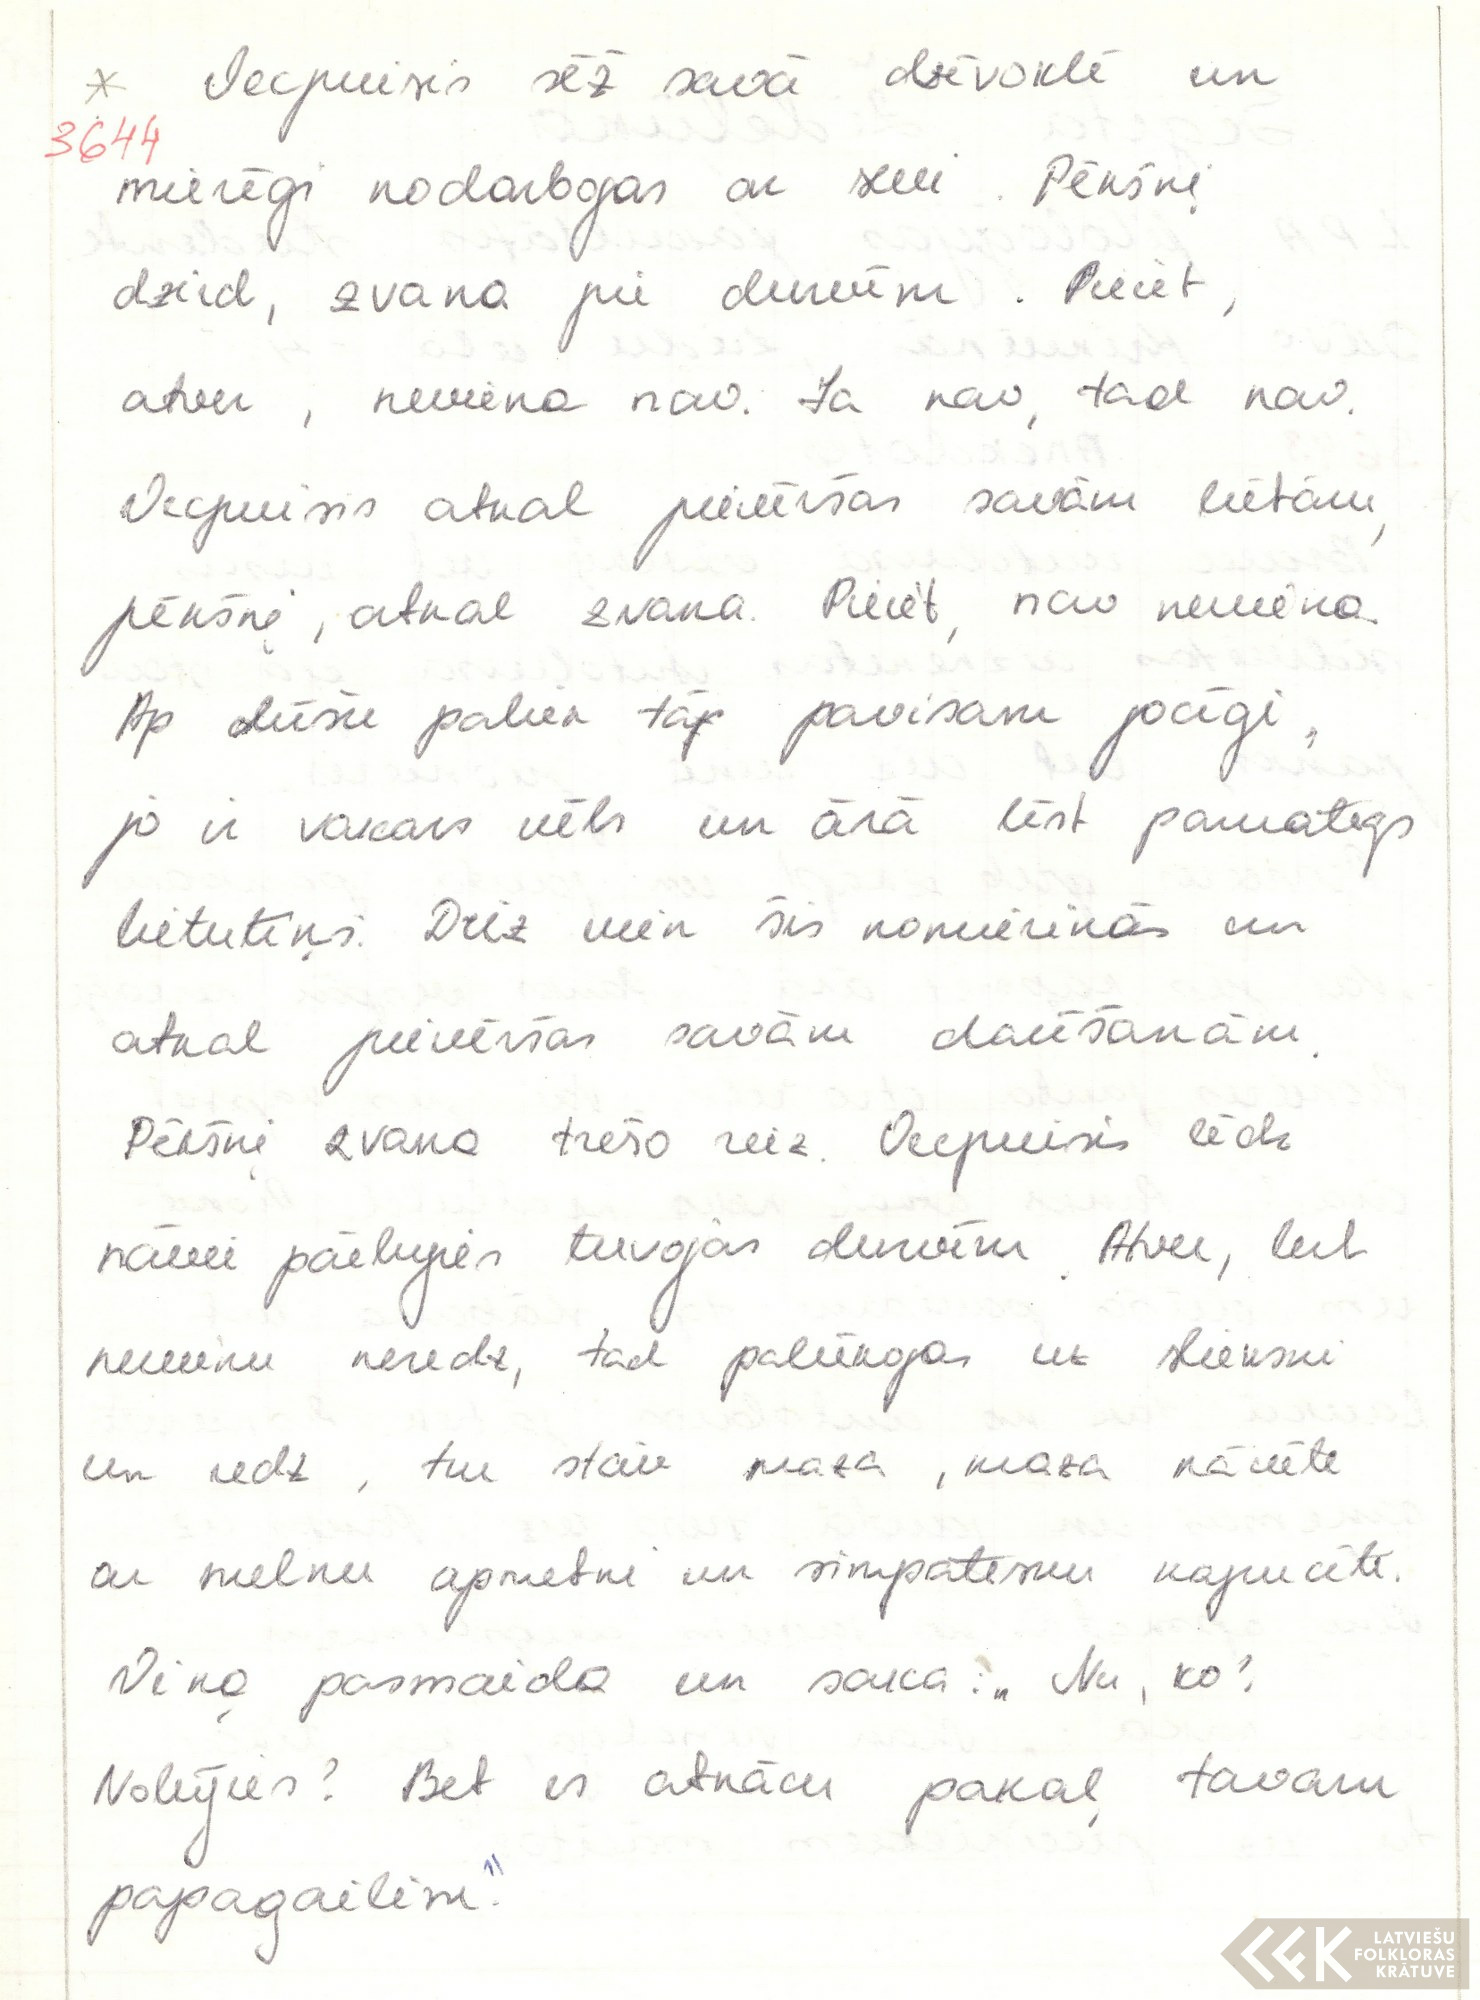 * Vecpuisis sēž savā dzīvoklī un
3644
mierīgi nodarbojas ar sevi. Pēkšņi
dzird, zvana pie durvīm. Pieiet,
atver, neviena nav. Ja nav, tad nav.
Vecpuisis atkal pievēršas savām lietām,
pēkšņi, atkal zvana. Pieiet, nav neviena.
Ap dūšu paliek tāp pavisam jocīgi,
jo ir vakars vēls un ārā līst pamatīgs
lietutiņš. Drīz vien šis nomierinās un
atkal pievēršas savām darīšanām.
Pēkšņi zvana trešo reiz. Vecpuisis līdz
nāvei pārbijies tuvojas durvīm. Atver, bet
nevienu neredz, tad palūkojas uz slieksni
un redz, tur stāv maza, maza nāvīte
ar melnu apmetni un simpātisku kapucīti.
Viņa pasmaida un saka: „Nu, ko?
Nobijies? Bet es atnācu pakaļ tavam
papagailim."
LATVIEŠU
FOLKLORAS
KRĀTUVE